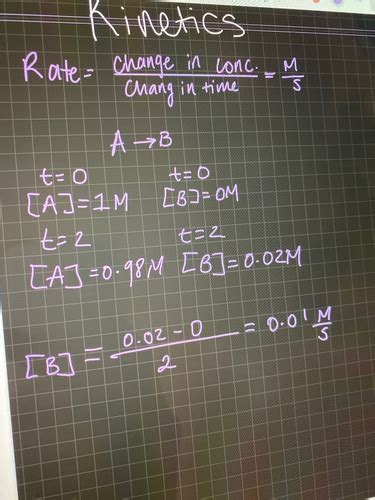 Kinetics
Rate = change in conc. / Chang in time = M/S
A → B
t=0 t=0
[A]=1M [B]=0M
t=2 t=2
[A]=0.98M [B]=0.02M
[B] = 0.02-0 / 2 = 0.01 M/S